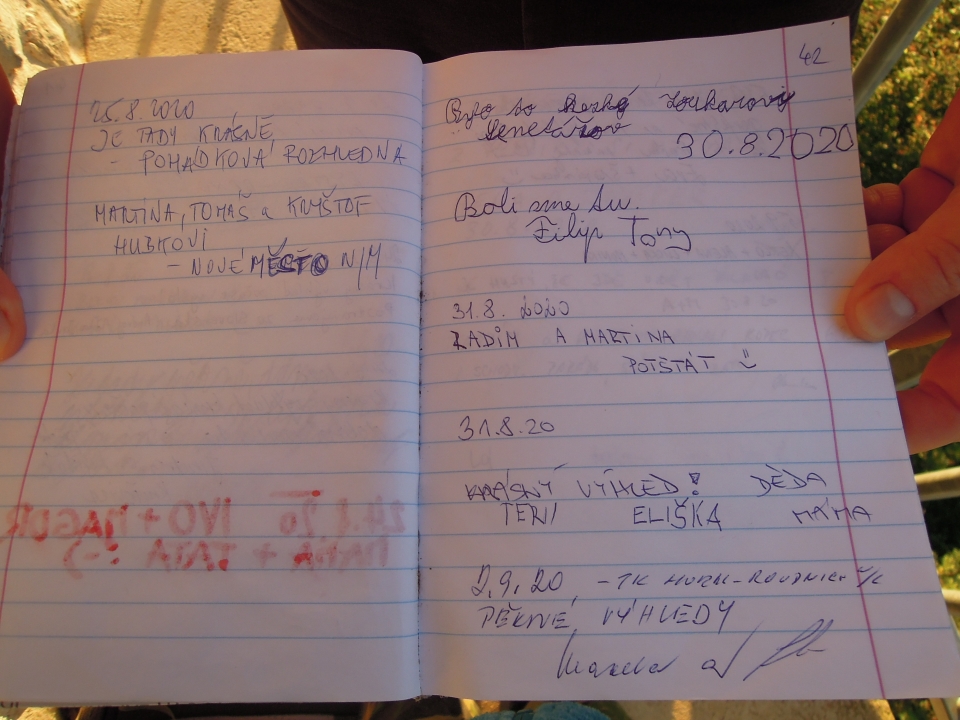 25.8.2020
JE TADY KRÁSNĚ
- POHÁDKOVÁ ROZHLEDNA
MARTINA, TOMÁŠ a KRYŠTOF
HUBKOVI
- NOVÉ MĚSTO N/M
42
Bylo to hezké
30.8.2020
Boli sme tu.
Filip Tony
31.8.2020
RADIM A MARTINA
POTŠTÁT
31.8.20
KRÁSNÝ VÝHLED! DĚDA
TERI ELIŠKA MÁMA
2.9.20 - TK
PĚKNÉ VÝHLEDY